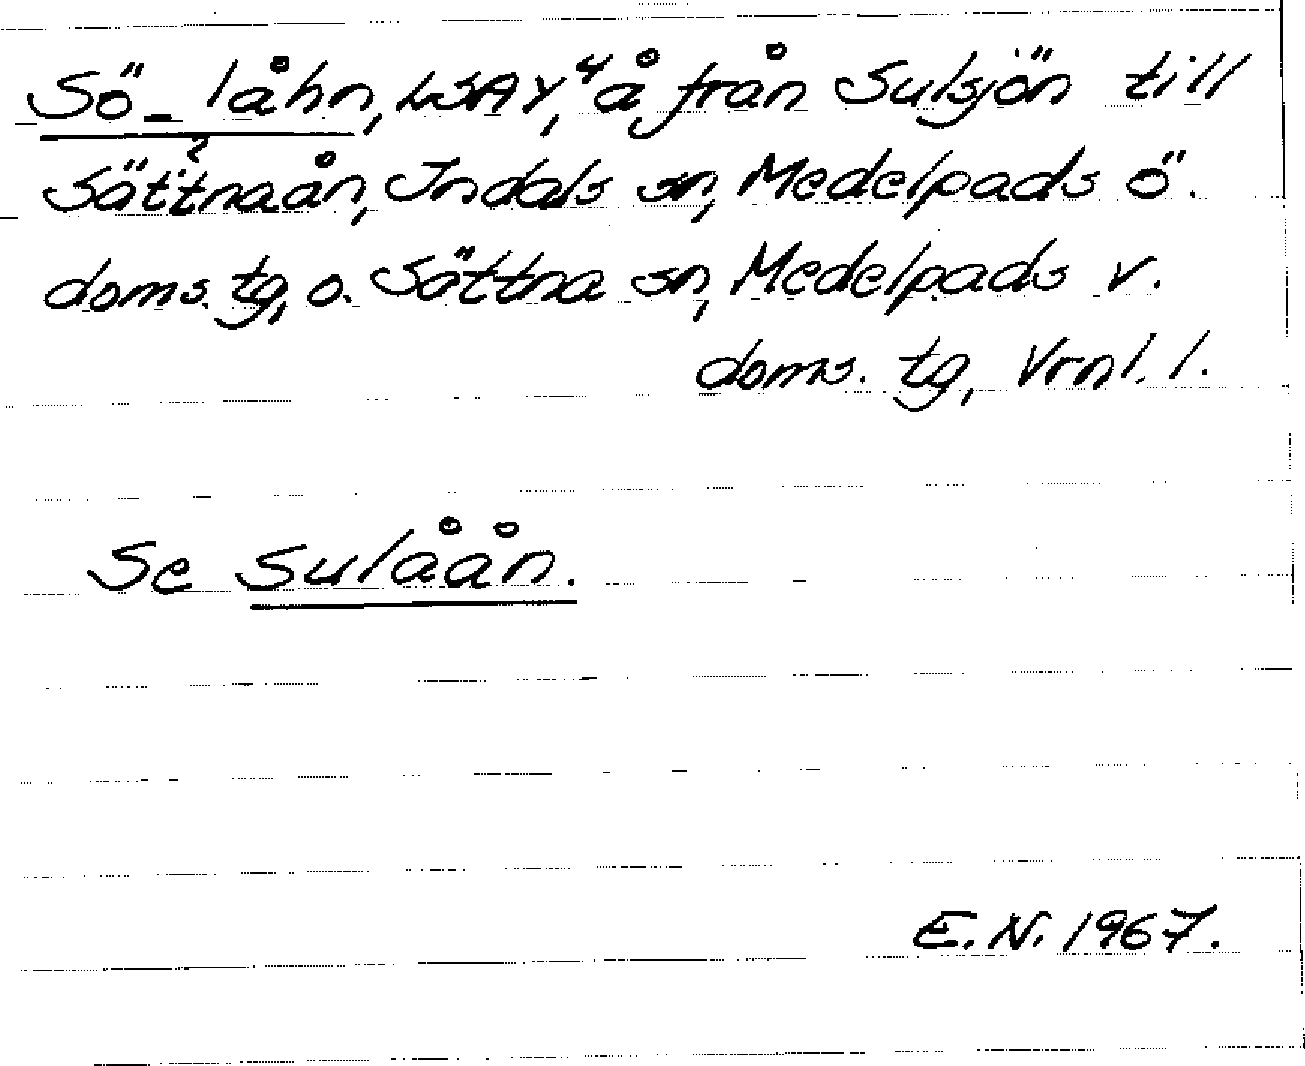 Sö_låhn, LSAY,⁴ å från Sulsjön till
Sättnaån, Indals sn, Medelpads ö.
doms. tg, o. Sättna sn, Medelpads v.
doms. tg, Vrnl. l.
Se Sulåån.
E.N. 1967.